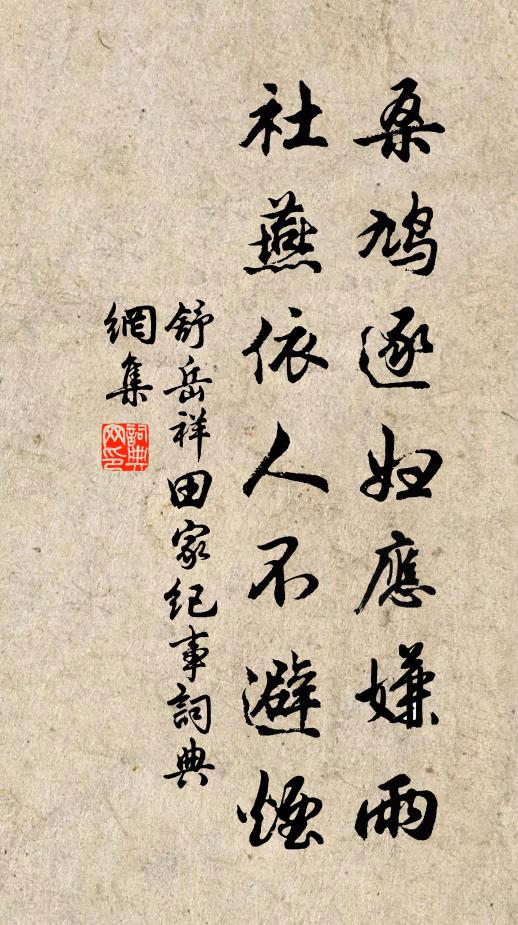 桑鳩逐妇應嫌雨
社燕依人不避煙
舒岳祥田家纪事詞典
網集
詞典网印